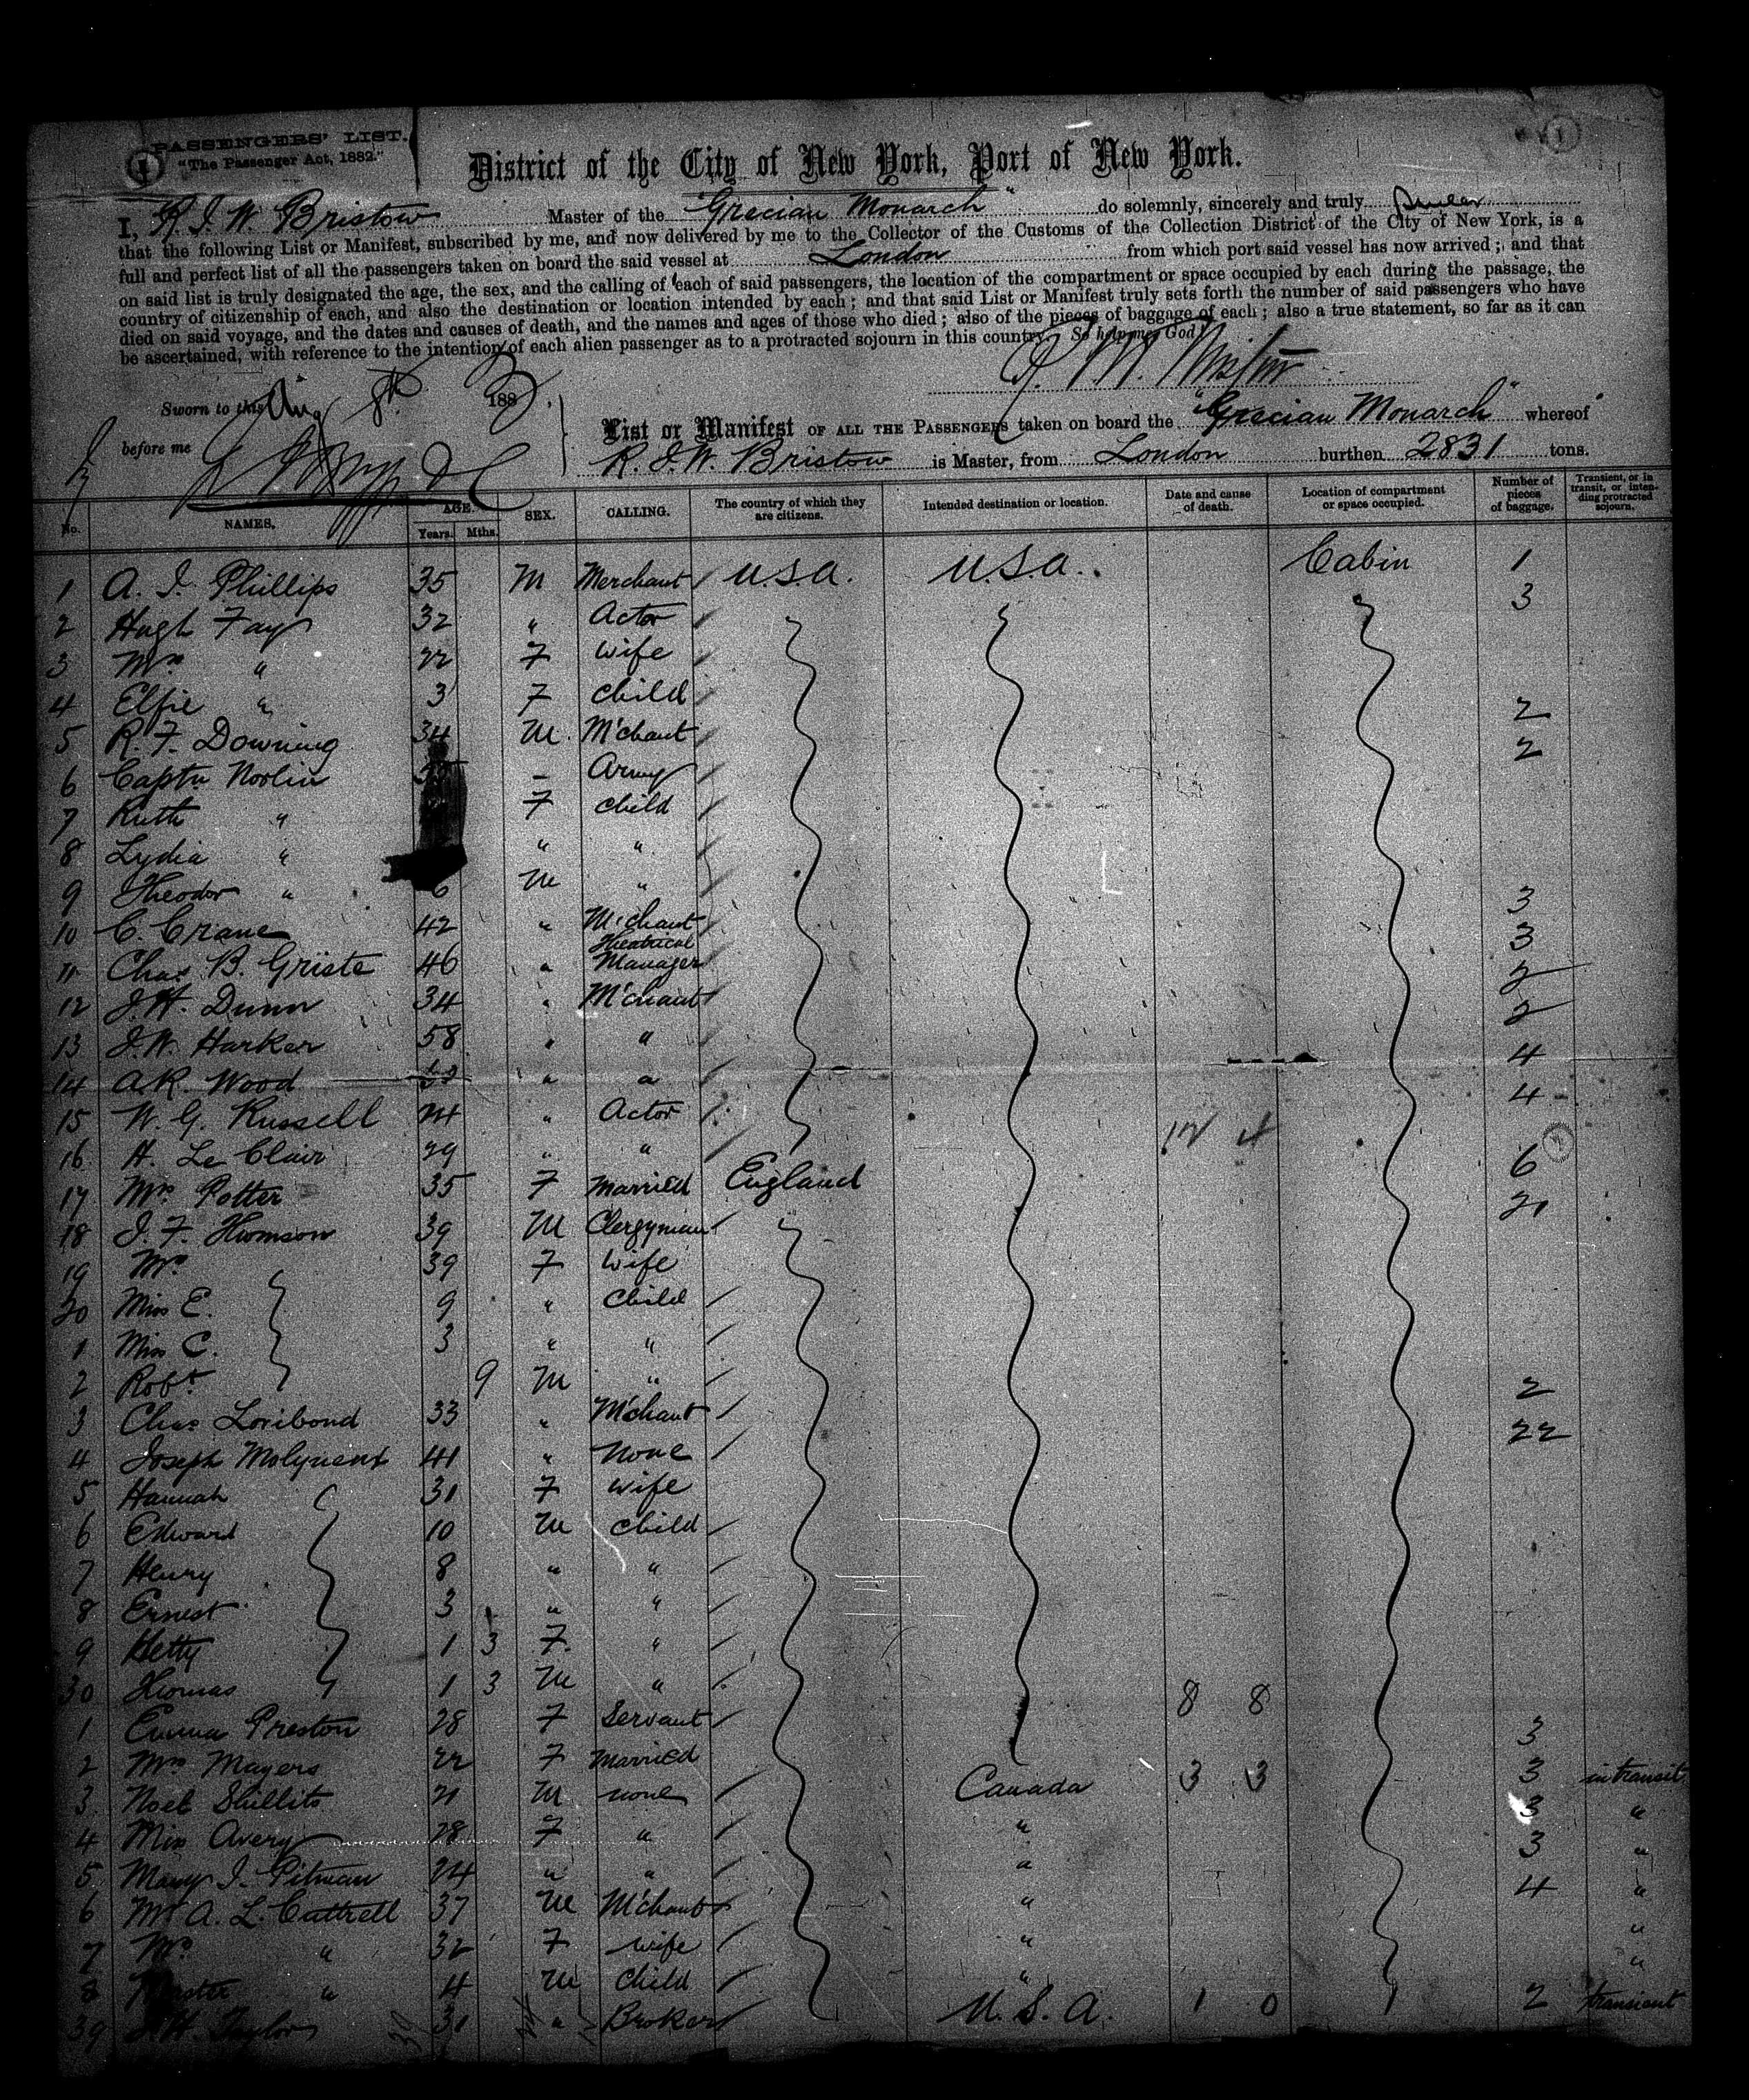 PASSENGERS' LIST.
"The Passenger Act, 1882."
District of the City of New York, Port of New York.
I, R. J. W. Bristow Master of the "Grecian Monarch" do solemnly, sincerely and truly
that the following List or Manifest, subscribed by me, and now delivered by me to the Collector of the Customs of the Collection District of the City of New York, is a
full and perfect list of all the passengers taken on board the said vessel at London from which port said vessel has now arrived; and that
on said list is truly designated the age, the sex, and the calling of each of said passengers, the location of the compartment or space occupied by each during the passage, the
country of citizenship of each, and also the destination or location intended by each; and that said List or Manifest truly sets forth the number of said passengers who have
died on said voyage, and the dates and causes of death, and the names and ages of those who died; also of the pieces of baggage of each; also a true statement, so far as it can
be ascertained, with reference to the intention of each alien passenger as to a protracted sojourn in this country. So help me God.
Sworn to this Aug 8th 188
before me
List or Manifest OF ALL THE PASSENGERS taken on board the "Grecian Monarch" whereof
R. J. W. Bristow is Master, from London burthen 2831 tons.
No. NAMES. AGE. Years. Mths. SEX. CALLING. The country of which they are citizens. Intended destination or location. Date and cause of death. Location of compartment or space occupied. Number of pieces of baggage. Transient, or in transit, or intending protracted sojourn.
1 A. I. Phillips 35 M Merchant U.S.A. U.S.A. Cabin 1
2 Hugh Fay 32 " Actor 3
3 Mrs " 22 F Wife
4 Elfie " 3 F Child
5 R. F. Downing 34 M. M'chant 2
6 Captn Norlin Army 2
7 Ruth " F Child
8 Lydia " " "
9 Theodor " 6 M "
10 C. Crane 42 " M'chant 3
11 Chas. B. Griste 46 " Theatrical Manager 3
12 J. H. Dunn 34 " M'chant 2
13 J. W. Harker 58 " " 2
14 A. R. Wood " " 4
15 W. G. Russell 24 " Actor 4
16 H. Le Clair 29 " " 12 4
17 Mrs Potter 35 F Married England 6
18 J. F. Thomson 39 M Clergyman 21
19 Mrs. 39 F Wife
20 Miss E. 9 " Child
1 Miss C. 3 " "
2 Robt. 9 M "
3 Chas Loribond 33 " M'chant 2
4 Joseph Molyneux 41 " None 22
5 Hannah 31 F Wife
6 Edward 10 M Child
7 Henry 8 " "
8 Ernest 3 " "
9 Hetty 1 3 F. "
30 Thomas 1 3 M "
1 Emma Preston 28 F Servant 8 8
2 Mrs Mayers 22 F Married 3
3 Noel Shillito 21 M none Canada 3 3 3 in transit
4 Miss Avery 28 F " " 3 "
5 Mary J. Pitman 24 " " " 3 "
6 Mr A. L. Cuttrell 37 M M'chant " 4 "
7 Mrs " 32 F Wife " "
8 Master " 4 M Child " "
39 J. H. Taylor 31 " Broker U. S. A. 1 0 2 transient